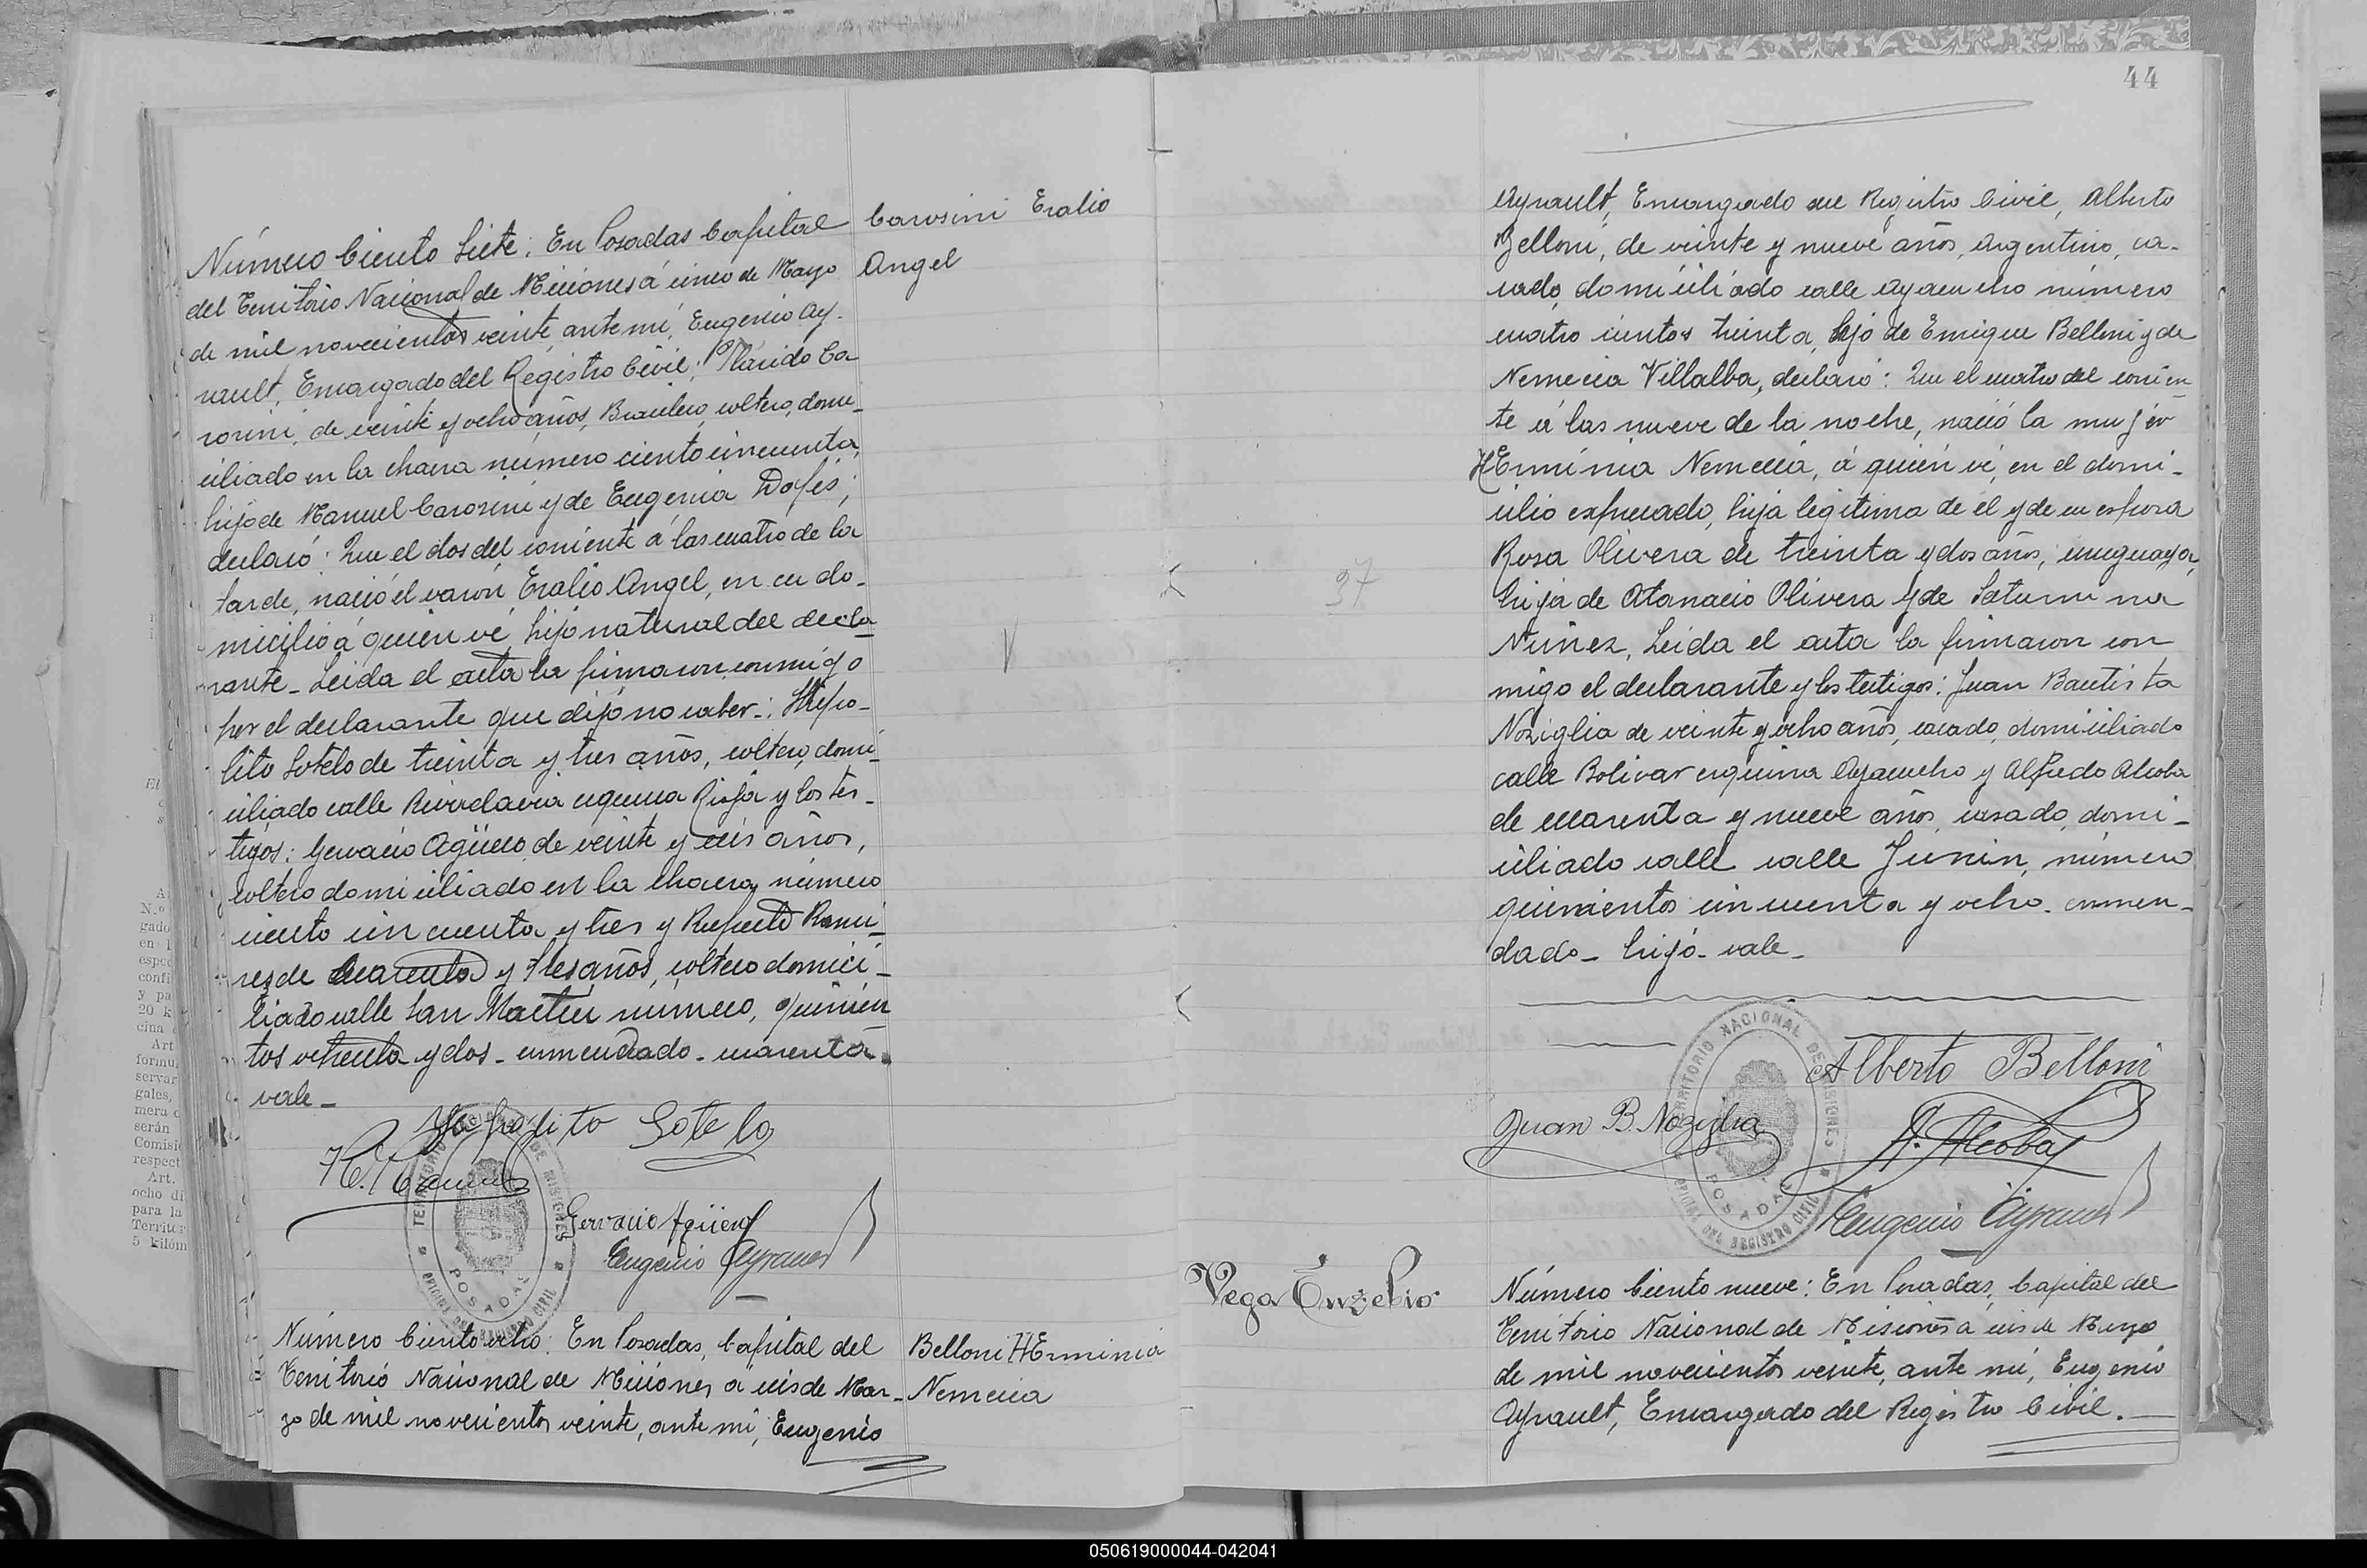 Número Ciento Siete: En Posadas Capital
del Territorio Nacional de Misiones á cinco de Mayo
de mil novecientos veinte, ante mí, Eugenio Ay-
rault, Encargado del Registro Civil; Plácido Ca-
rosini, de veinte y ocho años, Brasilero, soltero, domi-
ciliado en la chacra número ciento cincuenta,
hijo de Manuel Carosini y de Eugenia
declaró: Que el dos del corriente á las cuatro de la
tarde, nació el varón Eralio Angel, en su do-
micilio á quien ví, hijo natural del decla-
rante - Leida el acta la firmaron conmigo
por el declarante que dijo no saber -: Hipo-
lito Sotelo de treinta y tres años, soltero, domi-
ciliado calle Rivadavia esquina Rioja y los tes-
tigos: Gervacio Agüero, de veinte y seis años,
soltero domiciliado en la chacra número
ciento cincuenta y tres y Ruperto Rami-
res de cuarenta y tres años, soltero domici-
liado calle San Martin número, quinien
tos ochenta y dos - enmendado - cuarenta -
vale -
Carosini Eralio
Angel
Hipolito Sotelo
Gervacio Agüero
Eugenio Ayrault
TERRITORIO NACIONAL DE MISIONES
POSADAS
OFICINA DEL REGISTRO CIVIL
Número Ciento ocho: En Posadas, Capital del
Territorio Nacional de Misiones a seis de Mar-
zo de mil novecientos veinte, ante mí, Eugenio
Belloni HErminia
Nemecia
44
Ayrault, Encargado del Registro Civil, Alberto
Belloni, de veinte y nueve años, Argentino, ca-
sado, domiciliado calle Ayacucho número
cuatro cientos treinta, hijo de Enrique Belloni y de
Nemecia Villalba, declaró: Que el cuatro del corrien-
te á las nueve de la noche, nació la mujer
HErminia Nemecia, á quién ví, en el domi-
cilio expresado, hija legitima de él y de su esposa
Rosa Olivera de treinta y dos años, uruguaya,
hija de Atanacio Olivera y de Saturnina
Nuñez, Leida el acta la firmaron con
migo el declarante y los testigos: Juan Bautista
Noziglia de veinte y ocho años, casado, domiciliado
calle Bolivar esquina Ayacucho y Alfredo Alcoba
de cuarenta y nueve años, casado, domi-
ciliado calle calle Junin, número
quinientos cincuenta y ocho - enmen-
dado - hijo - vale -
37
Alberto Belloni
Juan B. Noziglia
A. Alcoba
Eugenio Ayrault
TERRITORIO NACIONAL DE MISIONES
POSADAS
OFICINA DEL REGISTRO CIVIL
Vega Euzebio
Número Ciento nueve: En Posadas, Capital del
Territorio Nacional de Misiones á seis de Marzo
de mil novecientos veinte, ante mí, Eugenio
Ayrault, Encargado del Registro Civil. -
050619000044-042041